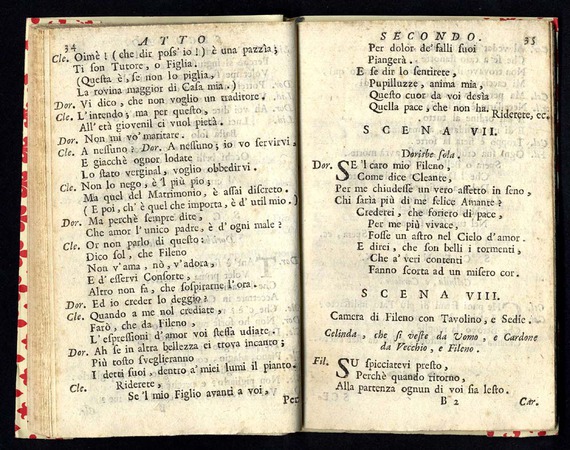 34
ATTO
Cle. Oimè! (che dir poss' io!) è una pazzìa;
Ti son Tutore, o Figlia.
(Questa è, se non lo piglia,
La rovina maggior di Casa mia.)
Dor. Vi dico, che non voglio un traditore.
Cle. L'intendo; ma per questo,
All' età giovenil ci vuol pietà.
Dor. Non mi vo' maritare.
Cle. A nessuno? Dor. A nessuno; io vo servirvi,
E giacchè ognor lodate
Lo stato verginal, voglio obbedirvi.
Cle. Non lo nego, è 'l più pio;
Ma quel del Matrimonio, è assai discreto.
(E poi, ch' è quel che importa, è d' util mio.)
Dor. Ma perchè sempre dite,
Che amor l'unico padre, è d' ogni male?
Cle. Or non parlo di questo:
Dico sol, che Fileno
Non v'ama, nò, v'adora,
E d' esservi Conforte,
Altro non fa, che sospirarne l'ora.
Dor. Ed io creder lo deggio?
Cle. Quando a me nol crediate,
Farò, che da Fileno,
L'espressioni d'amor voi stessa udiate.
Dor. Ah se in altra bellezza ei trova incanto;
Più tosto sveglieranno
I detti suoi, dentro a' miei lumi il pianto.
Cle. Riderete,
Se 'l mio Figlio avanti a voi,
Per
SECONDO.
35
Per dolor de' falli suoi
Piangerà.
E se dir lo sentirete,
Pupilluzze, anima mia,
Questo cuor da voi desìa
Quella pace, che non ha.
Riderete, ec.
SCENA VII.
Dorisbe sola.
Dor. SE 'l caro mio Fileno,
Come dice Cleante,
Per me chiudesse un vero affetto in seno,
Chi sarìa più di me felice Amante?
Crederei, che foriero di pace,
Per me più vivace,
Fosse un astro nel Cielo d' amor.
E direi, che son belli i tormenti,
Che a' veri contenti
Fanno scorta ad un misero cor.
SCENA VIII.
Camera di Fileno con Tavolino, e Sedie.
Celinda, che si veste da Uomo, e Cardone
da Vecchio, e Fileno.
Fil. SU spicciatevi presto,
Perchè quando ritorno,
Alla partenza ognun di voi sia lesto.
B 2
Car.